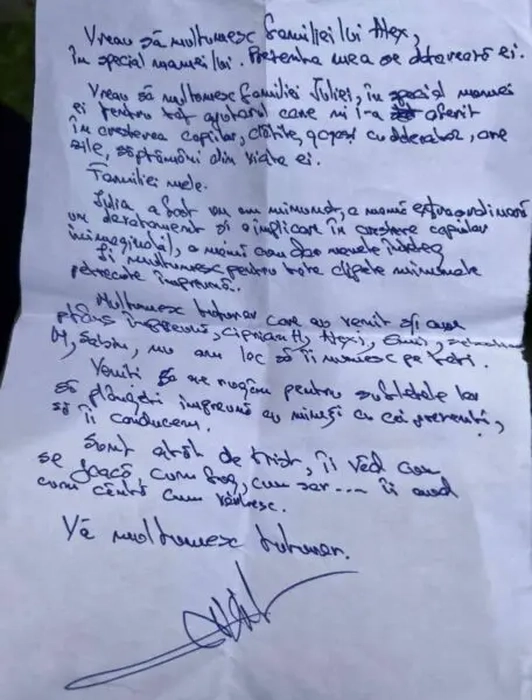 Vreau să mulțumesc familiei lui Alex,
în special mamei lui. Prezența mea se datorează ei.
Vreau să mulțumesc familiei Iuliei, în special mamei
ei pentru tot ajutorul care mi l-a oferit
în creșterea copiilor, clătite, gogoși cu, ore
zile, săptămâni din viața ei.
Familiei mele.
Iulia a fost un om minunat, o mamă extraordinară
un devotament și o implicare în creștere copiilor
inimaginabil, o mamă cum dar
Îi mulțumesc pentru toate clipele minunate
petrecute împreună.
Mulțumesc tuturor care au venit și au
plâns împreună, Ciprian H, Alexi, Emi,
M, Sabin, nu am loc să îi numesc pe toți.
Veniți să ne rugăm pentru sufletele lor
să plângeți împreună cu mine și cu cei prezenți,
să îi conducem.
Sunt atât de trist, îi văd cum
se joacă, cum fug, cum sar.... îi aud
cum cântă cum vorbesc.
Vă mulțumesc tuturor.